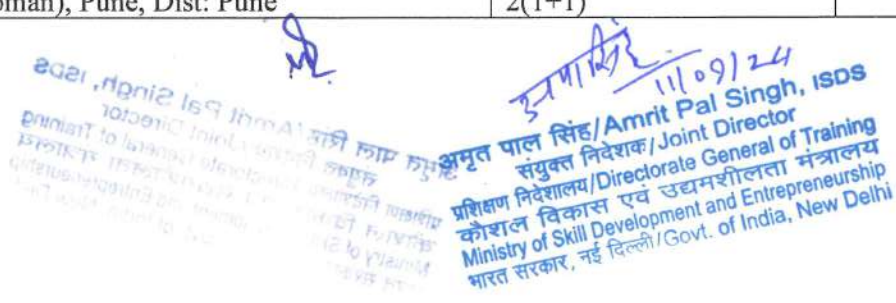 oman), Pune, Dist: Pune 2(1+1)
11/09/24
अमृत पाल सिंह/Amrit Pal Singh, ISDS
संयुक्त निदेशक/Joint Director
प्रशिक्षण निदेशालय/Directorate General of Training
कौशल विकास एवं उद्यमशीलता मंत्रालय
Ministry of Skill Development and Entrepreneurship
भारत सरकार, नई दिल्ली/Govt. of India, New Delhi